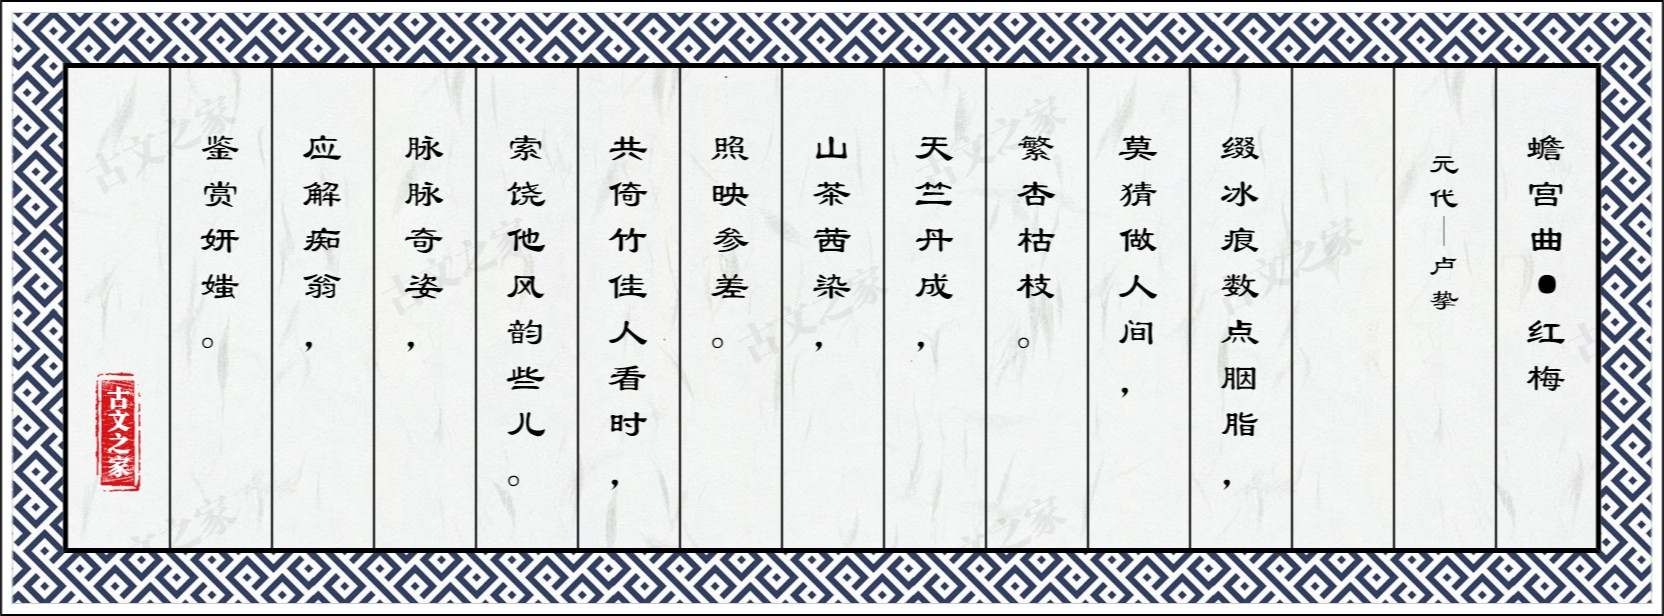 蟾宫曲●红梅
元代—卢挚
缀冰痕数点胭脂，
莫猜做人间，
繁杏枯枝。
天竺丹成，
山茶茜染，
照映参差。
共倚竹佳人看时，
索饶他风韵些儿。
脉脉奇姿，
应解痴翁，
鉴赏妍媸。
古文之家